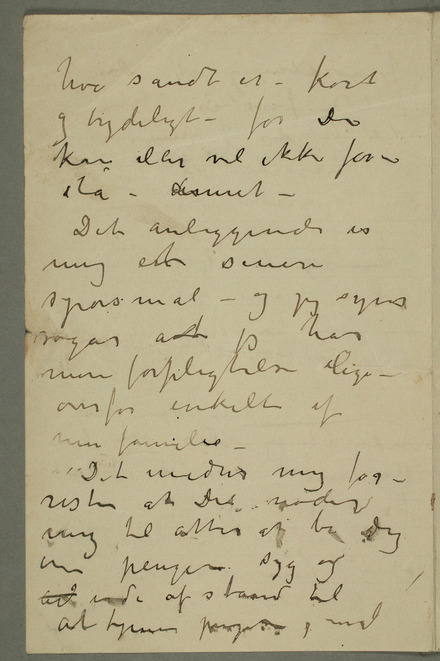 hva sandt er – kort
og tydeligt – for Du
kan eller vil ikke for-
stå –
Det anliggende er
mig et senere
spørsmål – og jeg synes
også at jeg har
mere forpligtelse lige-
overfor enkelt af
min familie –
Det med mig for-
resten at Du nøder
mig til atter at be Dig
om penger. Syg og
ude af stand til
at tjene penger og